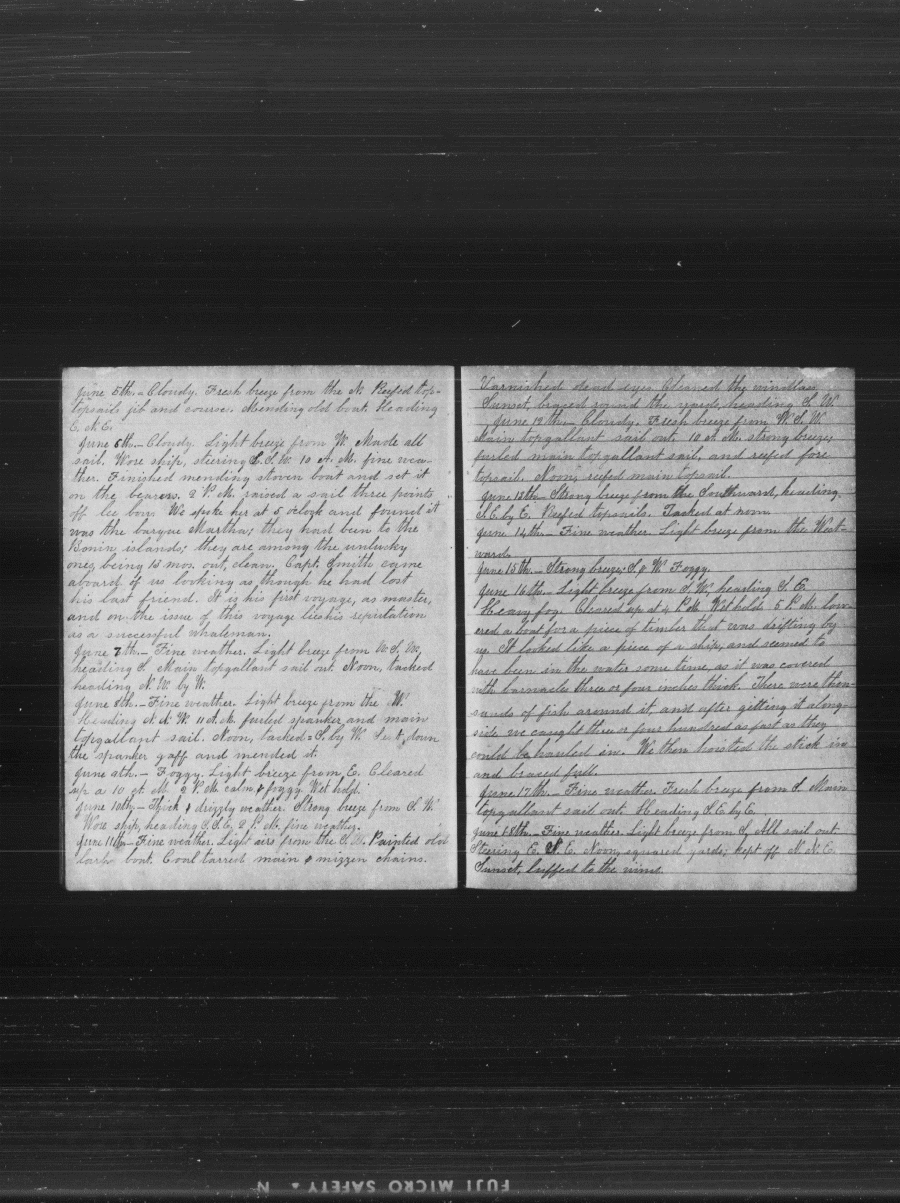 June 5th.- Cloudy. Fresh breeze from the N. Reefed top-
topsails jib and courses. Mending old boat. Heading
E. N. E.
June 6th.- Cloudy. Light breeze from W. Made all
sail. Wore ship, steering E.S.W. 10 A. M. fine wea-
ther. Finished mending stoven boat and set it
on the bearers. 2 P. M. raised a sail three points
off lee bow. We spoke her at 5 o'clock and found it
was the barque Martha; they had been to the
Bonin islands; they are among the unlucky
ones, being 18 mos. out, clean. Capt. Smith came
aboard of us looking as though he had lost
his last friend. It is his first voyage, as master,
and on the issue of this voyage lies his reputation
as a successful whaleman.
June 7th.- Fine weather. Light breeze from W. S. W.,
heading S. Main topgallant sail out. Noon, tacked
heading N. W. by W.
June 8th.- Fine weather. Light breeze from the W.
Heading N. N. W. 11 A. M. furled spanker, and main
topgallant sail. Noon, tacked S. by W. Sent down
the spanker gaff and mended it.
June 9th.- Foggy. Light breeze from E. Cleared
up a 10 A. M. 2 P. M. calm & foggy. Wet hold.
June 10th.- Thick & drizzly weather. Strong breeze from S. W.
Wore ship, heading S.S.E. 2 P. M. fine weather.
June 11th.- Fine weather. Light airs from the S. W. Painted old
boat. Coal tarred main & mizzen chains.
Varnished dead eyes. Cleaned the windlass
Sunset, braced round the yards, heading S. W.
June 12th.- Cloudy. Fresh breeze from W. S. W.
Main topgallant sail out. 10 A. M. strong breeze,
furled main topgallant sail, and reefed fore
topsail. Noon, reefed main topsail.
June 13th.- Strong breeze from the Southward, heading
S.E. by E. Reefed topsails. Tacked at noon.
June 14th.- Fine weather. Light breeze from the West-
ward.
June 15th.- Strong breeze, S. W. Foggy.
June 16th.- Light breeze from S. W., heading S. E.
Heavy fog. Cleared up at 4 P. M. Wet hold. 5 P. M. low-
ered a boat for a piece of timber that was drifting by
us. It looked like a piece of a ship, and seemed to
have been in the water some time, as it was covered
with barnacles three or four inches thick. There were thou-
sands of fish around it, and after getting it along-
side we caught three or four hundred as fast as they
could be hauled in. We then hoisted the stick in
and braced full.
June 17th.- Fine weather. Fresh breeze from S. Main
topgallant sail out. Heading S.E. by E.
June 18th.- Fine weather. Light breeze from S. All sail out.
Steering E. N. E. Noon, squared yards; kept off N. N. E.
Sunset, luffed to the wind.
FUJI MICRO SAFETY ▲ N